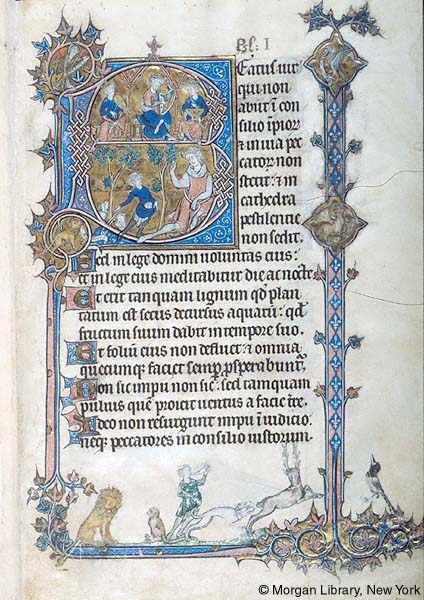 Ps: I
Eatus uir
qui non
abiit i con
silio ipior
& in uia pec
cator non
stetit : & in
cathedra
pestilentie
non sedit.
Sed in lege domini uoluntas eius :
et in lege eius meditabitur die ac nocte.
Et erit tanquam lignum qd plan
tatum est secus decursus aquarum : qd
fructum suum dabit in tempore suo.
Et folium eius non defluet : & omnia
quecumq faciet semp psperabunt.
Non sic impii non sic : sed tamquam
puluis que proicit uentus a facie tre.
Ideo non resurgunt impii i iudicio :
neq peccatores in consilio iustorum.
© Morgan Library, New York